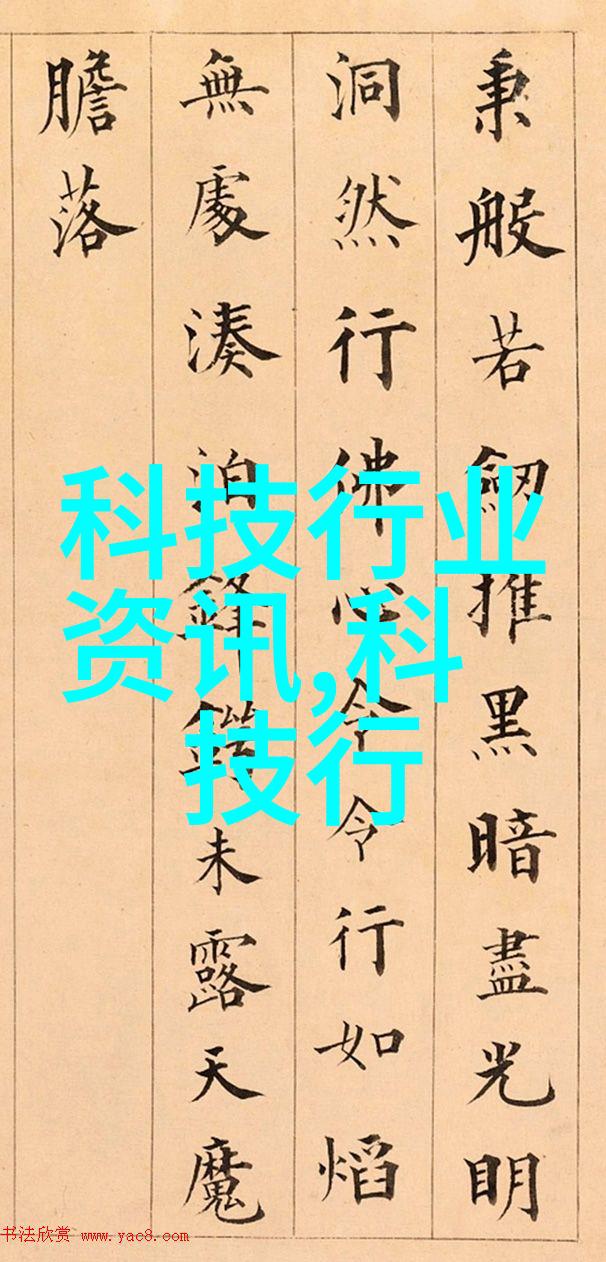 秉般若劒推黑暗盡光明
洞然行佛心令令行如熖
無處湊泊鋒未露天魔
膽落
科技行业
资讯,科
技行
书法欣赏 www.yac8.com